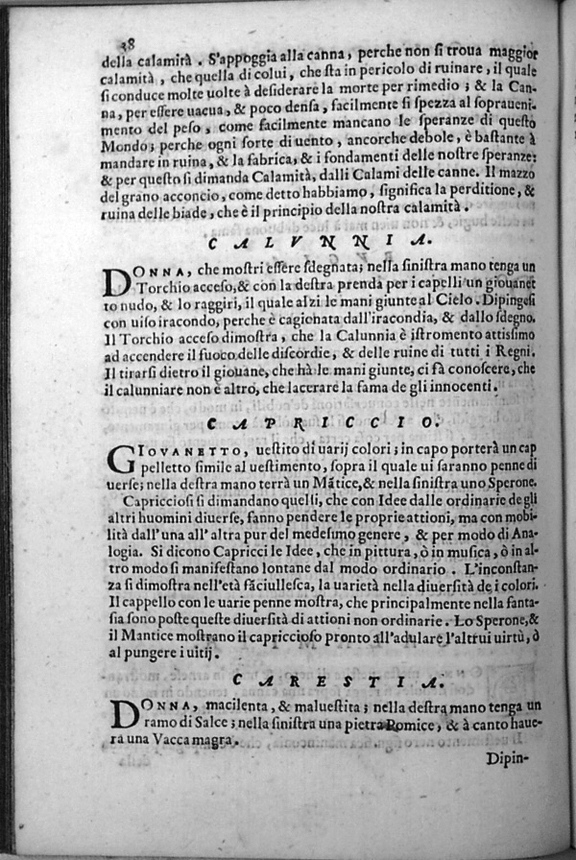 38
della calamità. S'appoggia alla canna, perche non si troua maggior
calamità, che quella di colui, che sta in pericolo di ruinare, il quale
si conduce molte uolte à desiderare la morte per rimedio; & la Can-
na, per essere uacua, & poco densa, facilmente si spezza al sopraueni-
mento del peso, come facilmente mancano le speranze di questo
Mondo; perche ogni sorte di uento, ancorche debole, è bastante à
mandare in ruina, & la fabrica, & i fondamenti delle nostre speranze:
& per questo si dimanda Calamità, dalli Calami delle canne. Il mazzo
del grano acconcio, come detto habbiamo, significa la perditione, &
ruina delle biade, che è il principio della nostra calamità.
CALVNNIA.
DONNA, che mostri essere sdegnata; nella sinistra mano tenga un
Torchio acceso, & con la destra prenda per i capelli un giouanet
to nudo, & lo raggiri, il quale alzi le mani giunte al Cielo. Dipingesi
con uiso iracondo, perche è cagionata dall'iracondia, & dallo sdegno.
Il Torchio acceso dimostra, che la Calunnia è istromento attissimo
ad accendere il fuoco delle discordie, & delle ruine di tutti i Regni.
Il tirarsi dietro il giouane, che hà le mani giunte, ci fà conoscere, che
il calunniare non è altro, che lacerare la fama de gli innocenti.
CAPRICCIO.
GIOVANETTO, uestito di uarij colori; in capo porterà un cap
pelletto simile al uestimento, sopra il quale ui saranno penne di
uerse; nella destra mano terrà un Mãtice, & nella sinistra uno Sperone.
Capricciosi si dimandano quelli, che con Idee dalle ordinarie degli
altri huomini diuerse, fanno pendere le proprie attioni, ma con mobi-
lità dall'una all'altra pur del medesimo genere, & per modo di Ana-
logia. Si dicono Capricci le Idee, che in pittura, ò in musica, ò in al-
tro modo si manifestano lontane dal modo ordinario. L'inconstan-
za si dimostra nell'età fãciullesca, la uarietà nella diuersità de i colori.
Il cappello con le uarie penne mostra, che principalmente nella fanta-
sia sono poste queste diuersità di attioni non ordinarie. Lo Sperone, &
il Mantice mostrano il capriccioso pronto all'adulare l'altrui uirtù, ò
al pungere i uitij.
CARESTIA.
DONNA, macilenta, & maluestita; nella destra mano tenga un
ramo di Salce; nella sinistra una pietra Pomice, & à canto haue-
rà una Vacca magra.
Dipin-